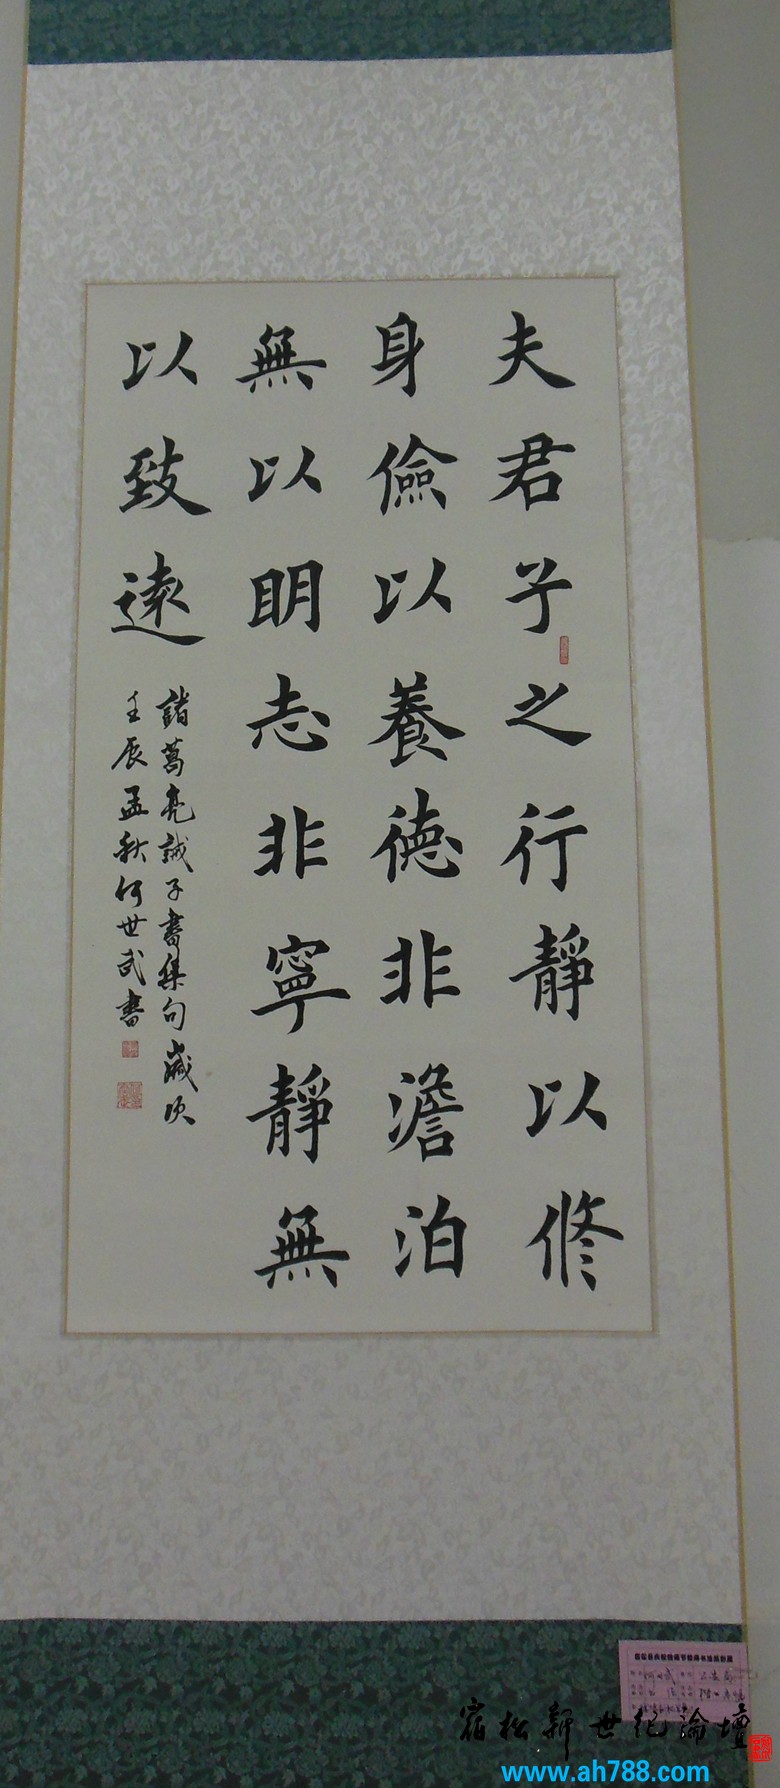 夫君子之行靜以修
身儉以養德非澹泊
無以明志非寧靜無
以致遠
諸葛亮誡子書集句歲次
壬辰孟秋何世武書
宿松新世纪論壇
www.ah788.com